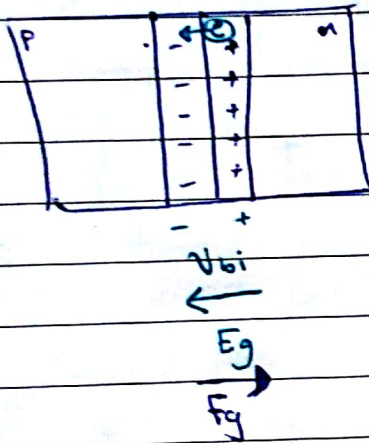 P - e + n
- +
- +
- +
- +
- +
Vbi
Eg
Fg